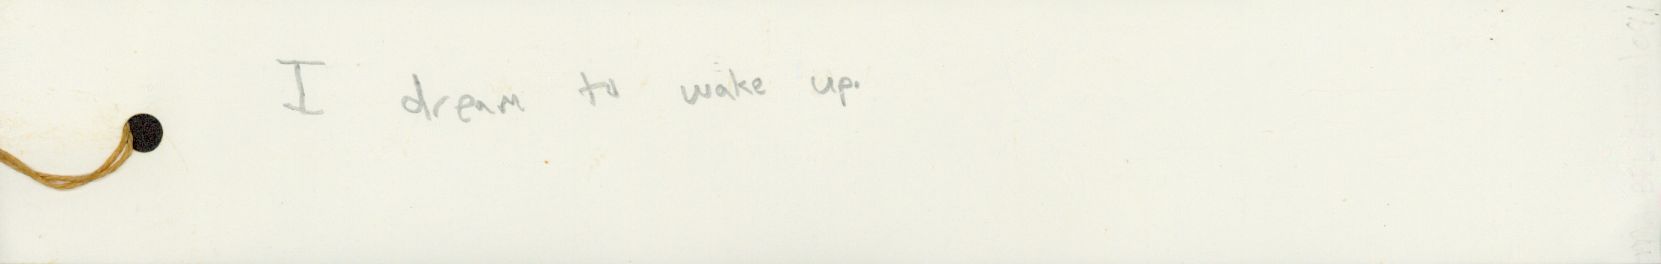 I dream to wake up.